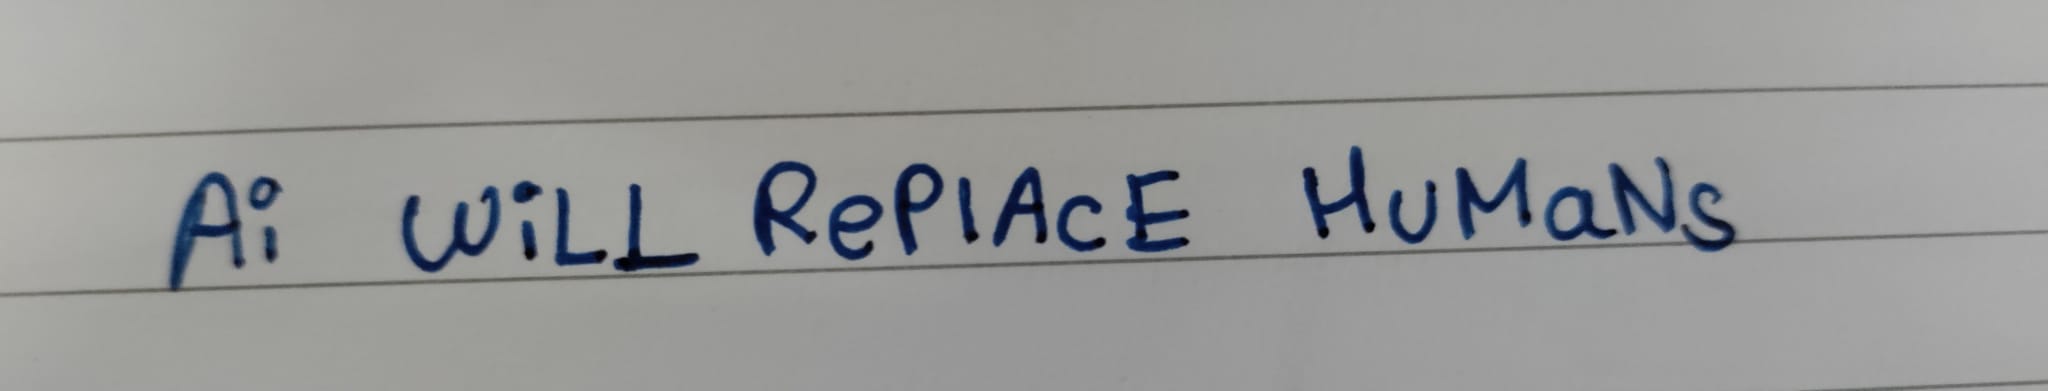 Ai WiLL RePlAcE HuMaNs